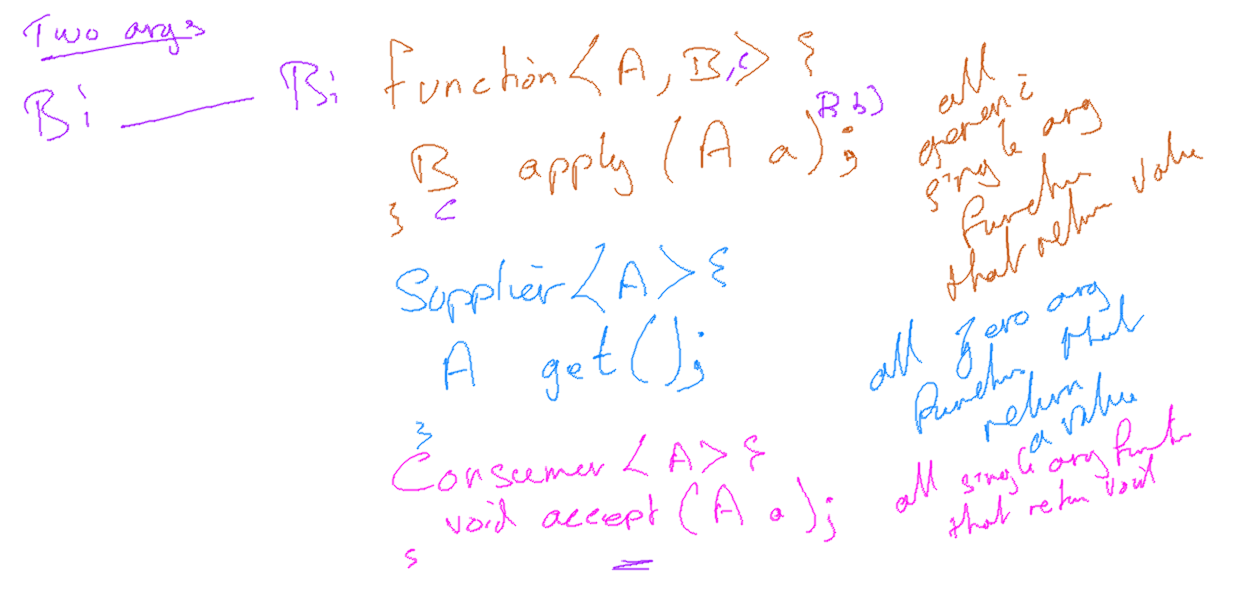 Two args
Bi ——— Bi
Function<A, B, C> {
B apply (A a);
B b)
C
}
all generic
single arg
function
that return value
Supplier<A> {
A get();
}
all zero arg
function that
return
a value
Consumer<A> {
void accept (A a);
}
all single arg function
that return void